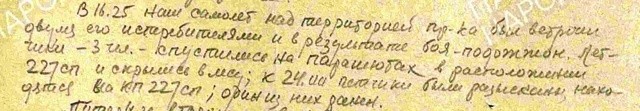 В 16.25 наш самолет над территорией пр-ка был встречен
двумя его истребителями и в результате боя - подожжен. Лет-
чики - 3 чл. - спустились на парашютах в расположении
227сп и скрылись в лесу; к 24.00 летчики были разысканы, нахо-
дятся на КП 227сп; один из них ранен.